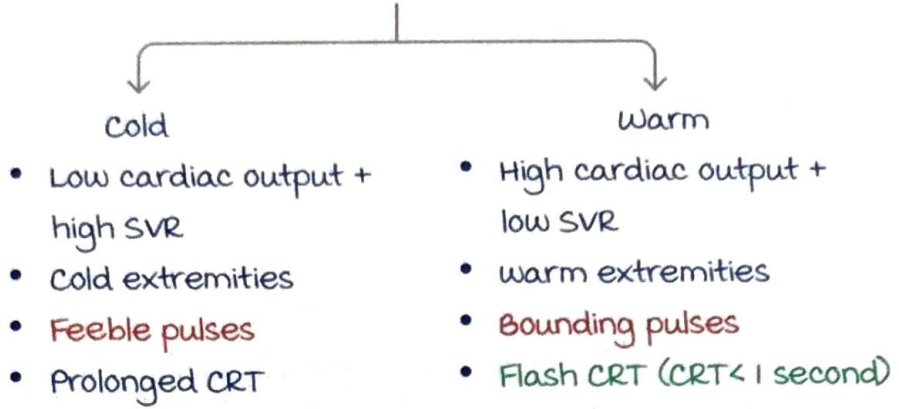 Cold
• Low cardiac output +
high SVR
• Cold extremities
• Feeble pulses
• Prolonged CRT
Warm
• High cardiac output +
low SVR
• warm extremities
• Bounding pulses
• Flash CRT (CRT< 1 second)